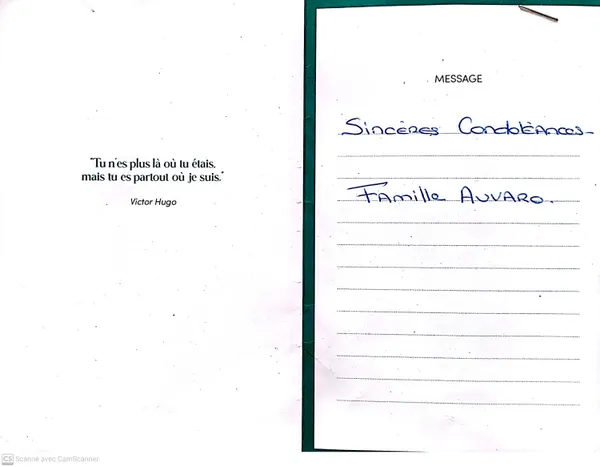 "Tu n'es plus là où tu étais,
mais tu es partout où je suis."
Victor Hugo
MESSAGE
Sincères Condoléances
Famille AUVARO.
CS Scanné avec CamScanner